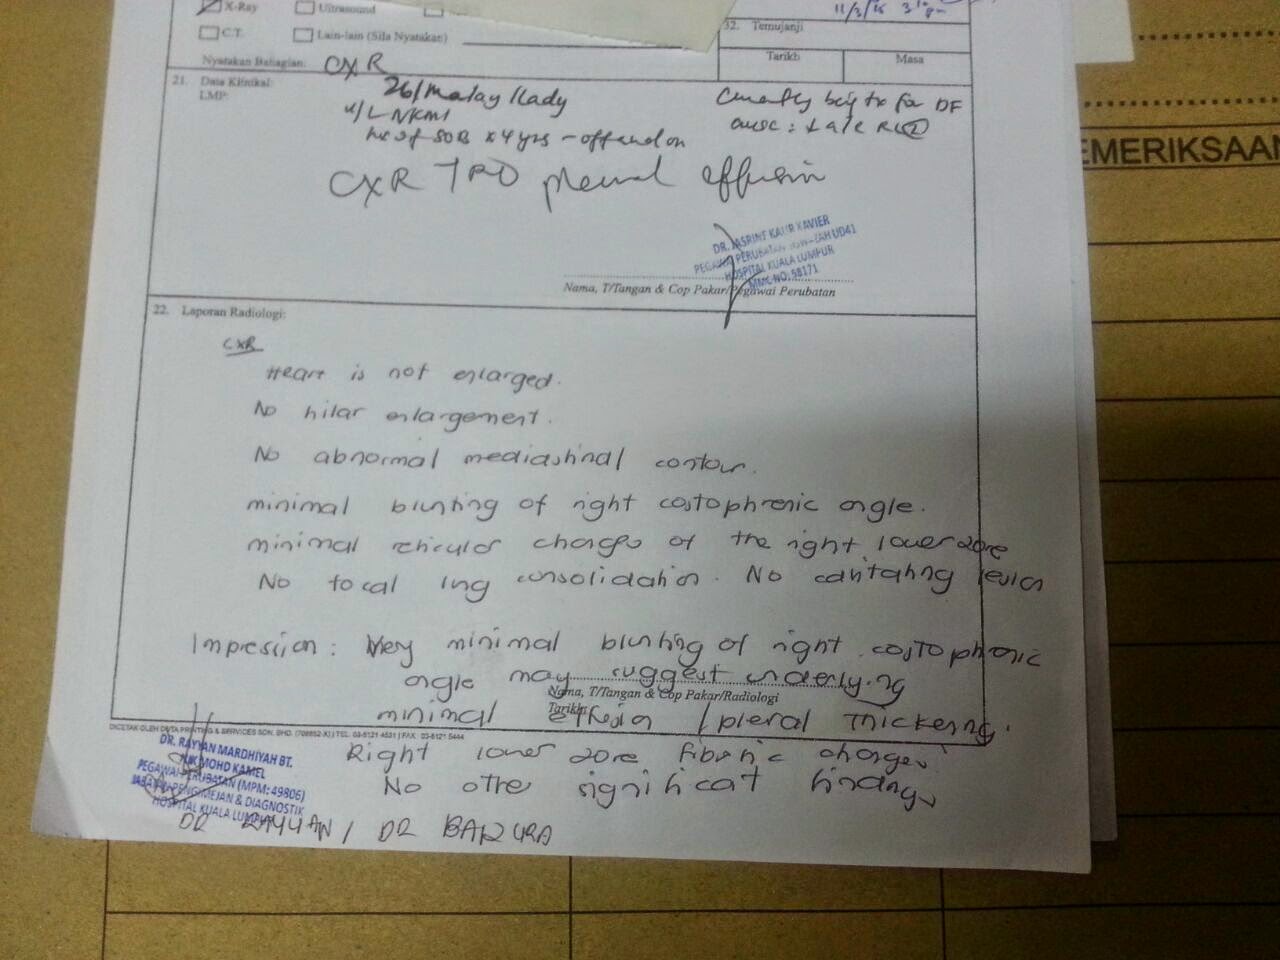 X-Ray
Ultrasound
C.T.
Lain-lain (Sila Nyatakan)
Nyatakan Bahagian: CXR
11/3/15
32. Temujanji
Tarikh
Masa
21. Data Klinikal:
LMP:
26/malay/lady
u/L NKMI
hx of SOB x 4 yrs - off and on
Currently being tx for DF
CXR TRO pleural effusion
DR. JASRINE KAUR XAVIER
PEGAWAI PERUBATAN UD41
HOSPITAL KUALA LUMPUR
MMC NO: 58171
Nama, T/Tangan & Cop Pakar/Pegawai Perubatan
EMERIKSAAN
22. Laporan Radiologi:
CXR
Heart is not enlarged.
No hilar enlargement.
No abnormal mediastinal contour.
minimal blunting of right costophrenic angle.
minimal reticular changes of the right lower zone
No focal lung consolidation. No cavitating lesion
Impression: Very minimal blunting of right costophrenic
angle may suggest underlying
Nama, T/Tangan & Cop Pakar/Radiologi
Tarikh:
minimal effusion / pleral thickening.
DICETAK OLEH DVTA PRINTING & SERVICES SDN. BHD. (708652-X) | TEL: 03-6121 4531 | FAX: 03-6121 5444
Right lower zone fibrotic changes
No other significat findings
DR. RAYYAN MARDHIYAH BT.
NIK MOHD KAMEL
PEGAWAI PERUBATAN (MPM: 49806)
JABATAN PENGIMEJAN & DIAGNOSTIK
HOSPITAL KUALA LUMPUR
DR RAYYAN / DR BAIZURA